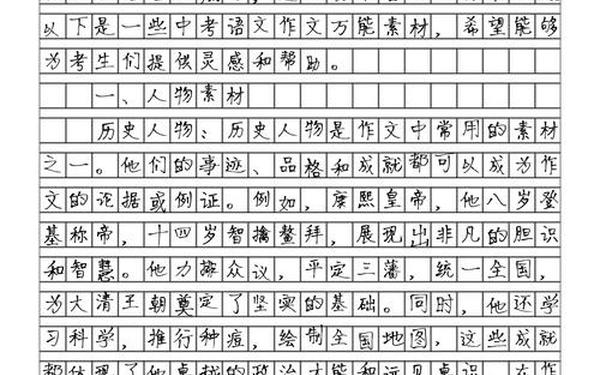 以下是一些中考语文作文万能素材，希望能够
为考生们提供灵感和帮助。
一、人物素材
历史人物：历史人物是作文中常用的素材
之一。他们的事迹、品格和成就都可以成为作
文的论据或例证。例如，康熙皇帝，他八岁登
基称帝，十四岁智擒鳌拜，展现出非凡的胆识
和智慧。他力排众议，平定三藩，统一全国，
为大清王朝奠定了坚实的基础。同时，他还学
习科学，推行种痘，绘制全国地图，这些成就
都体现了他卓越的政治才能和远见卓识。在作